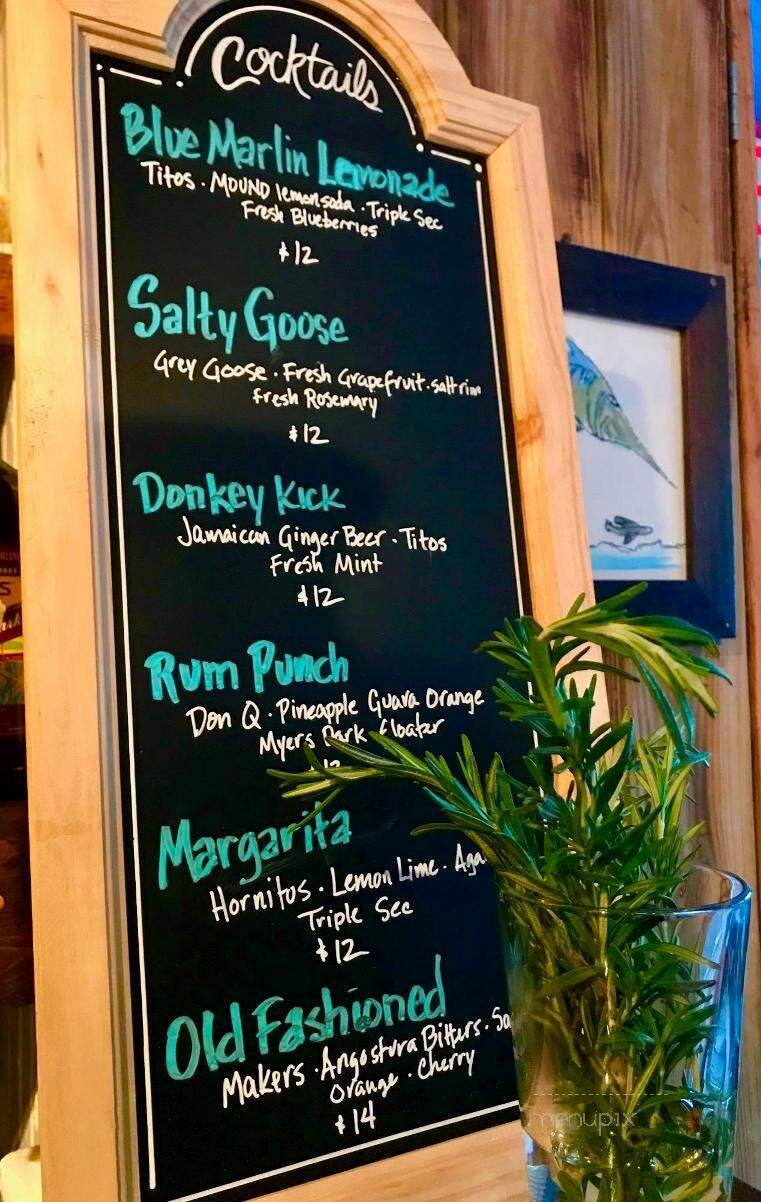 Cocktails
Blue Marlin Lemonade
Titos · MOUND lemon soda · Triple Sec
Fresh Blueberries
$12
Salty Goose
Grey Goose · Fresh Grapefruit · salt rim
Fresh Rosemary
$12
Donkey Kick
Jamaican Ginger Beer · Titos
Fresh Mint
$12
Rum Punch
Don Q · Pineapple Guava Orange
Myers Dark Floater
Margarita
Hornitos · Lemon Lime ·
Triple Sec
$12
Old Fashioned
Makers · Angostura Bitters ·
Orange · Cherry
$14
menupix